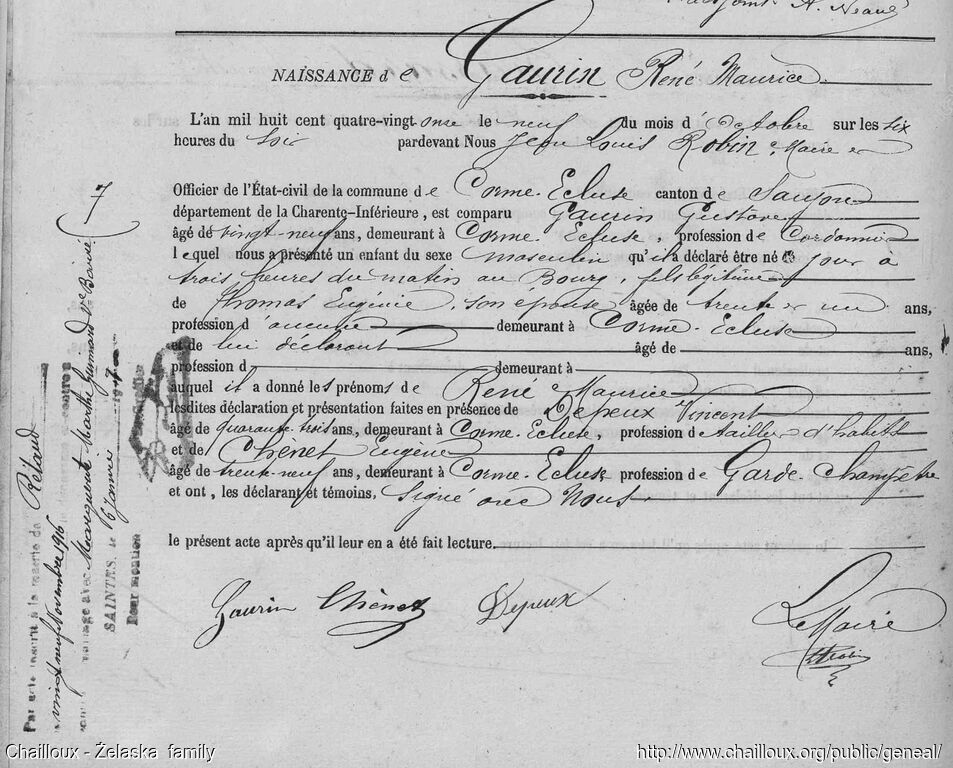 A. Neaud
NAISSANCE de Gaurin René Maurice
L'an mil huit cent quatre-vingt-onze le neuf du mois d'Octobre sur les six
heures du soir pardevant Nous Jean Louis Robin, Maire et
Officier de l'État-civil de la commune de Corme-Ecluse canton de Saujon
département de la Charente-Inférieure, est comparu Gaurin Gustave
âgé de vingt-neuf ans, demeurant à Corme-Ecluse, profession de Cordonnier
lequel nous a présenté un enfant du sexe masculin qu'il a déclaré être né ce jour à
trois heures du matin au Bourg, fils légitime
de Thomas Eugénie, son épouse âgée de trente et un ans,
profession d'aucune demeurant à Corme-Ecluse
et de lui déclarant âgé de ans,
profession d demeurant à
auquel il a donné les prénoms de René Maurice
lesdites déclaration et présentation faites en présence de Depeux Vincent
âgé de quarante trois ans, demeurant à Corme-Ecluse, profession de tailleur d'habits
et de Chènet Eugène
âgé de trente-neuf ans, demeurant à Corme-Ecluse profession de Garde-Champêtre
et ont, les déclarant et témoins, signé avec Nous
le présent acte après qu'il leur en a été fait lecture.
Gaurin Chènet Depeux Le Maire
Robin
Par acte inscrit à la mairie de Rétaud
vingt neuf Novembre 1916
mariage avec Marguerite Marthe Guimard Ve
SAINTES, le 6 Janvier 1917
Pour mention
7
Chailloux - Żelaska family
http://www.chailloux.org/public/geneal/